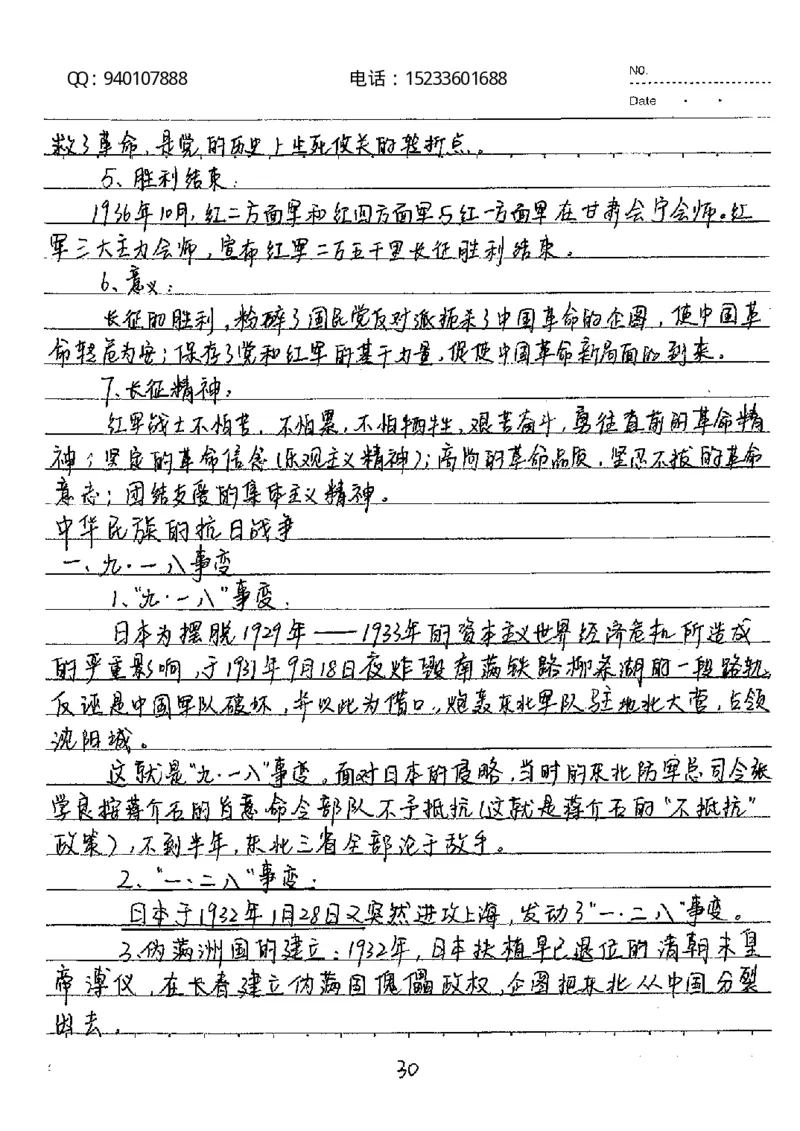 QQ：940107888
电话：15233601688
NO.
Date
救了革命，是党的历史上生死攸关的转折点。
5、胜利结束：
1936年10月，红二方面军和红四方面军与红一方面军在甘肃会宁会师。红
军三大主力会师，宣布红军二万五千里长征胜利结束。
6、意义：
长征的胜利，粉碎了国民党反对派扼杀了中国革命的企图，使中国革
命转危为安；保存了党和红军的基干力量，促使中国革命新局面的到来。
7、长征精神：
红军战士不怕苦，不怕累，不怕牺牲，艰苦奋斗，勇往直前的革命精
神；坚定的革命信念（乐观主义精神）；高尚的革命品质，坚忍不拔的革命
意志；团结友爱的集体主义精神。
中华民族的抗日战争
一、九·一八事变
1、“九·一八”事变：
日本为摆脱1929年——1933年的资本主义世界经济危机所造成
的严重影响，于1931年9月18日夜炸毁南满铁路柳条湖的一段路轨，
反诬是中国军队破坏，并以此为借口，炮轰东北军队驻地北大营，占领
沈阳城。
这就是“九·一八”事变。面对日本的侵略，当时的东北防军总司令张
学良按蒋介石的旨意命令部队不予抵抗（这就是蒋介石的“不抵抗”
政策），不到半年，东北三省全部沦于敌手。
2、“一·二八”事变：
日本于1932年1月28日又突然进攻上海，发动了“一·二八”事变。
3、伪满洲国的建立：1932年，日本扶植早已退位的清朝末皇
帝溥仪，在长春建立伪满国傀儡政权，企图把东北从中国分裂
出去。
30